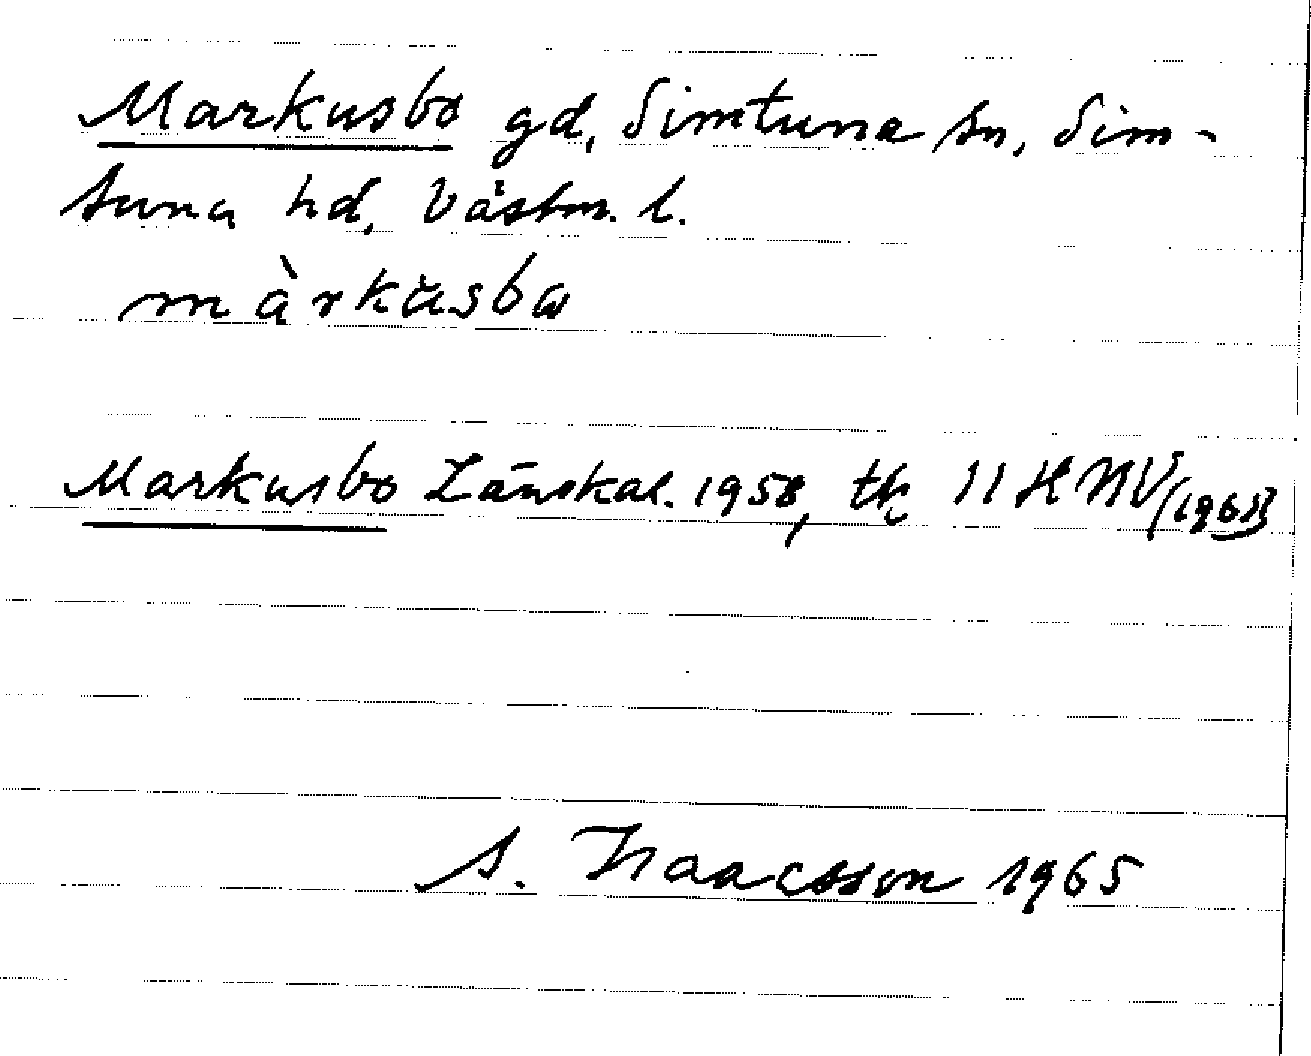 Markusbo gd, Simtuna sn, Sim-
tuna hd, Västm. l.
màrkäsba
Markusbo Länskal. 1958, tk 11 H NV (1965)
A. Isaacsson 1965